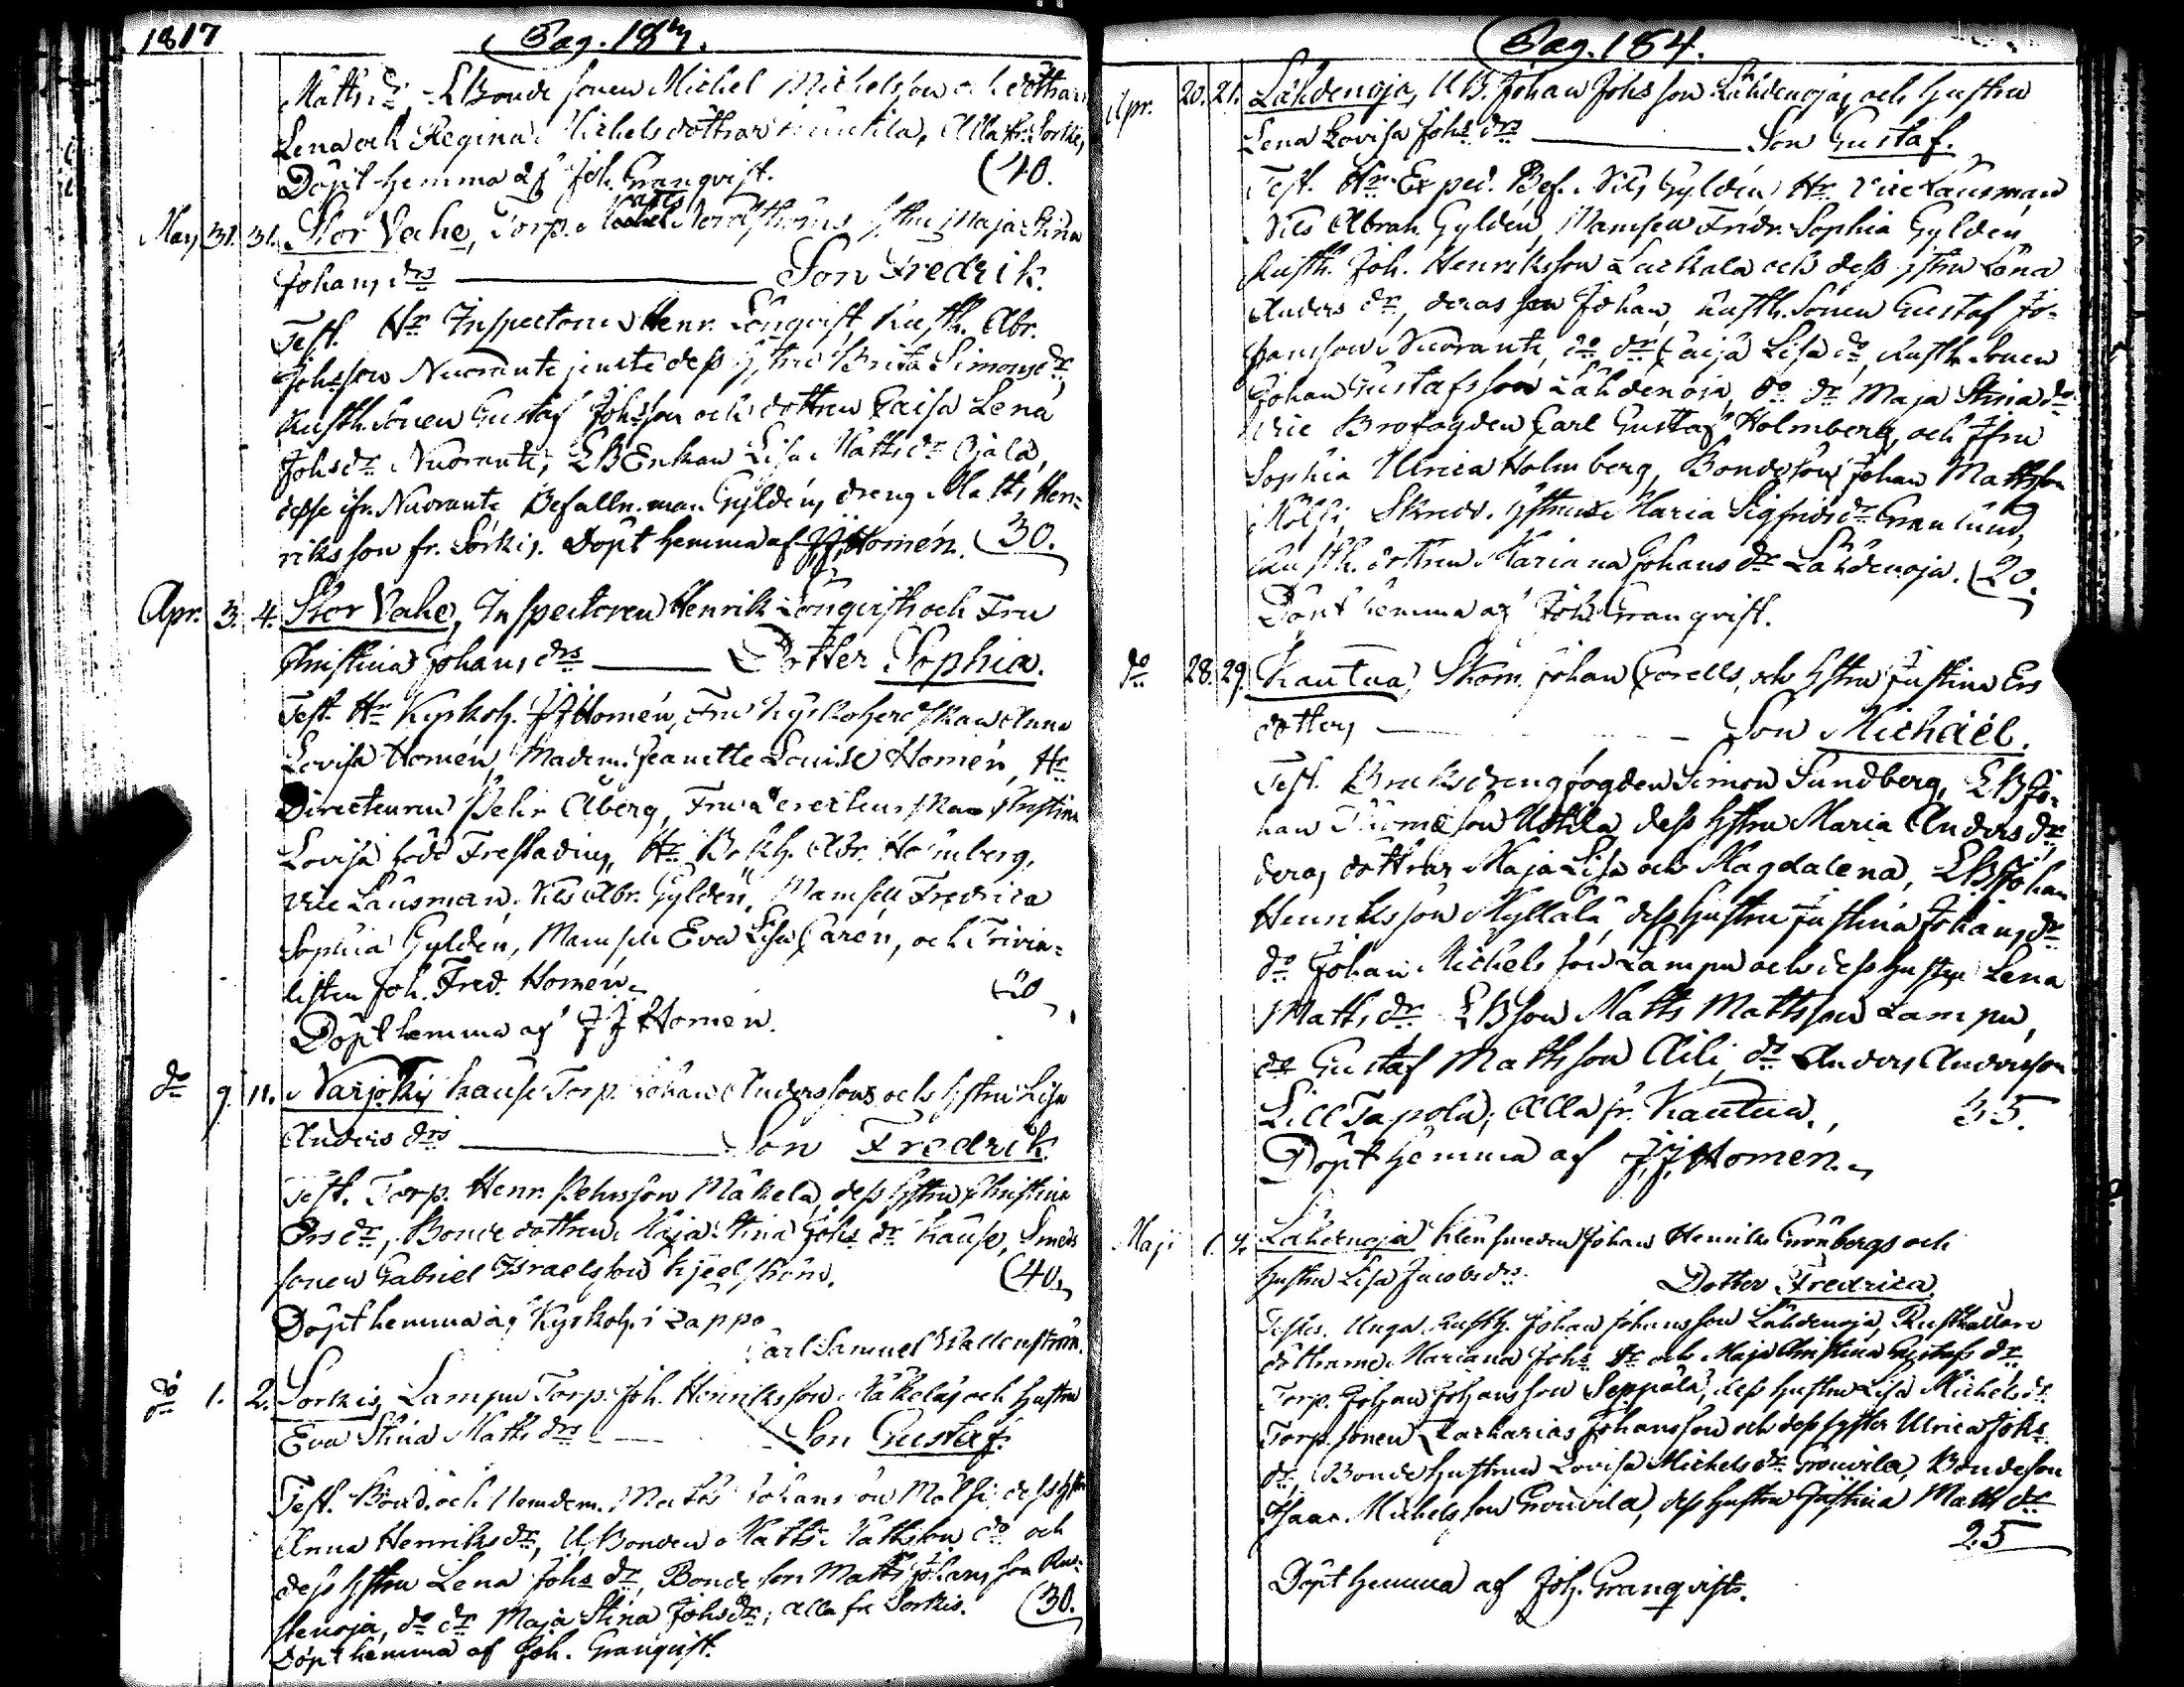 1817
Pag. 183.
Matts dr, LBonde sonen Michel Michelsson och döttrar
Lena och Regina Michelsdöttrar Anttila, Alla fr. Sorkis,
Döpt hemma af Joh. Granqvist. (40.
May 31. 31. Stor Vahe, Torp. Nordströms hstru Maja Stina
Johans drs Son Fredrik.
Test. Hr Inspectoren Henr. Lönqvist, Rusth. Abr.
Johsson Nuorante jemte dess hstru Brita Simons dr,
Rusth. Sonen Gustaf Johsson och dottren Caisa Lena
Johs dr Nuorante, LBEnkan Lisa Matts dr Ojala,
desse ifr. Nuorante Befalln. man Gyldén, dreng Matts Hen-
riksson fr. Sorkis. Döpt hemma af JJHomén. (30.
Apr. 3. 4. Stor Vahe, Inspectoren Henrik Lönqvist och Fru
Christina Johans drs Dotter Sophia.
Test. Hr Kyrkoh. JJHomén, Fru Kyrkoherdskan Anna
Lovisa Homén, Madem. Jeanette Louise Homén, Hr
Directeuren Pehr Åberg, Fru Directeurskan Christina
Lovisa född Frestadius, Hr Bokh. Adr. Holmberg,
Vice Länsman Nils Abr. Gyldén, Mamsell Fredrica
Sophia Gyldén, Mamsell Eva Lisa Carén, och Trivia-
listen Joh. Fred. Homén. 20
Döpt hemma af JJ Homén.
do 9. 11. Narjoki, Kause Torp. Johan Anderssons och hstru Lisa
Anders drs Son Fredrik
Test. Torp. Henr. Pehrsson Mäkelä, dess hstru Christina
Ers dr, Bonde dottren Maja Stina Johs dr Kause, Smeds
sonen Gabriel Israelsson Kjeelström. (40.
Döpt hemma af Kyrkoh. i Lappo
Carl Samuel Wallenström.
do 1. 2. Sorkis, Lampu Torp. Joh. Henriksson Mäkeläs och hustru
Eva Stina Matts drs Son Gustaf.
Test. Bond. och Nemdem. Matts Johansson Mölsi, dess hstru
Anna Henriks dr, UBonden Matts Mattsson do och
dess hstru Lena Johs dr, Bonde son Matts Johansson Ru-
stenoja, do dr Maja Stina Johs dr; alla fr Sorkis. (30.
Döpt hemma af Joh. Granqvist.
Pag. 184.
Apr. 20. 21. Lähdenoja, UB. Johan Johsson Lähdenojas och hustru
Lena Lovisa Johs drs Son Gustaf.
Test. Hr Exped. Bef. Nils Gyldén, Hr Vice Länsman
Nils Abrah. Gyldén, Mamsell Fredr. Sophia Gyldén
Rusth. Joh. Henriksson Laikala och dess hstru Lena
Anders dr, deras son Johan, Rusth. Sonen Gustaf Jo-
hansson Nuorante, do dr Caisa Lisa do, Rusth. sonen
Johan Gustafsson Lähdenoja, do dr Maja Stina do
Vice Brofogden Carl Gustaf Holmberg, och Jfru
Sophia Ulrica Holmberg, Bondeson Johan Mattsson
Mölsi, Skredd. hstrun Maria Sigfrids dr Granlund,
Rusth. dottren Mariana Johans dr Lähdenoja. (20.
Döpt hemma af Joh. Granqvist.
do 28. 29. Kautua, Skom. Johan Corells, och hstru Justina Ers
dotters Son Michaël.
Test. Bruksdrengfogden Simon Sundberg, LB Jo-
han Thomesson Uotila, dess hstru Maria Anders dr
deras döttrar Maja Lisa och Magdalena, LB Johan
Henriksson Kyllälä, dess hustru Justina Johans dr
do Johan Michelsson Lampu och dess hustru Lena
Matts dr LBson Matts Mattsson Lampu,
do Gustaf Mattsson Äili, do Anders Andersson
Lill Tapola, Alla fr. Kautua. 35.
Döpt hemma af JJHomén.
Maji 1. 4. Lähdenoja Klensmeden Johan Henriks Grönbergs och
hustru Lisa Jacobs drs Dotter Fredrica
Testes. Unga Rusth. Johan Johansson Lähdenoja, Rusthållare
döttrarne Mariana Johs dr och Maja Christina Gustafs dr
Torp. Johan Johansson Seppälä, dess hustru Lisa Michels dr
Torp. sonen Zacharias Johansson och dess syster Ulrica Johs
dr, Bonde hustrun Lovisa Michels dr Grouvila, Bondeson
Isaac Michelsson Grouvila, dess hustru Justina Matts dr
25
Döpt hemma af Joh. Granqvist.